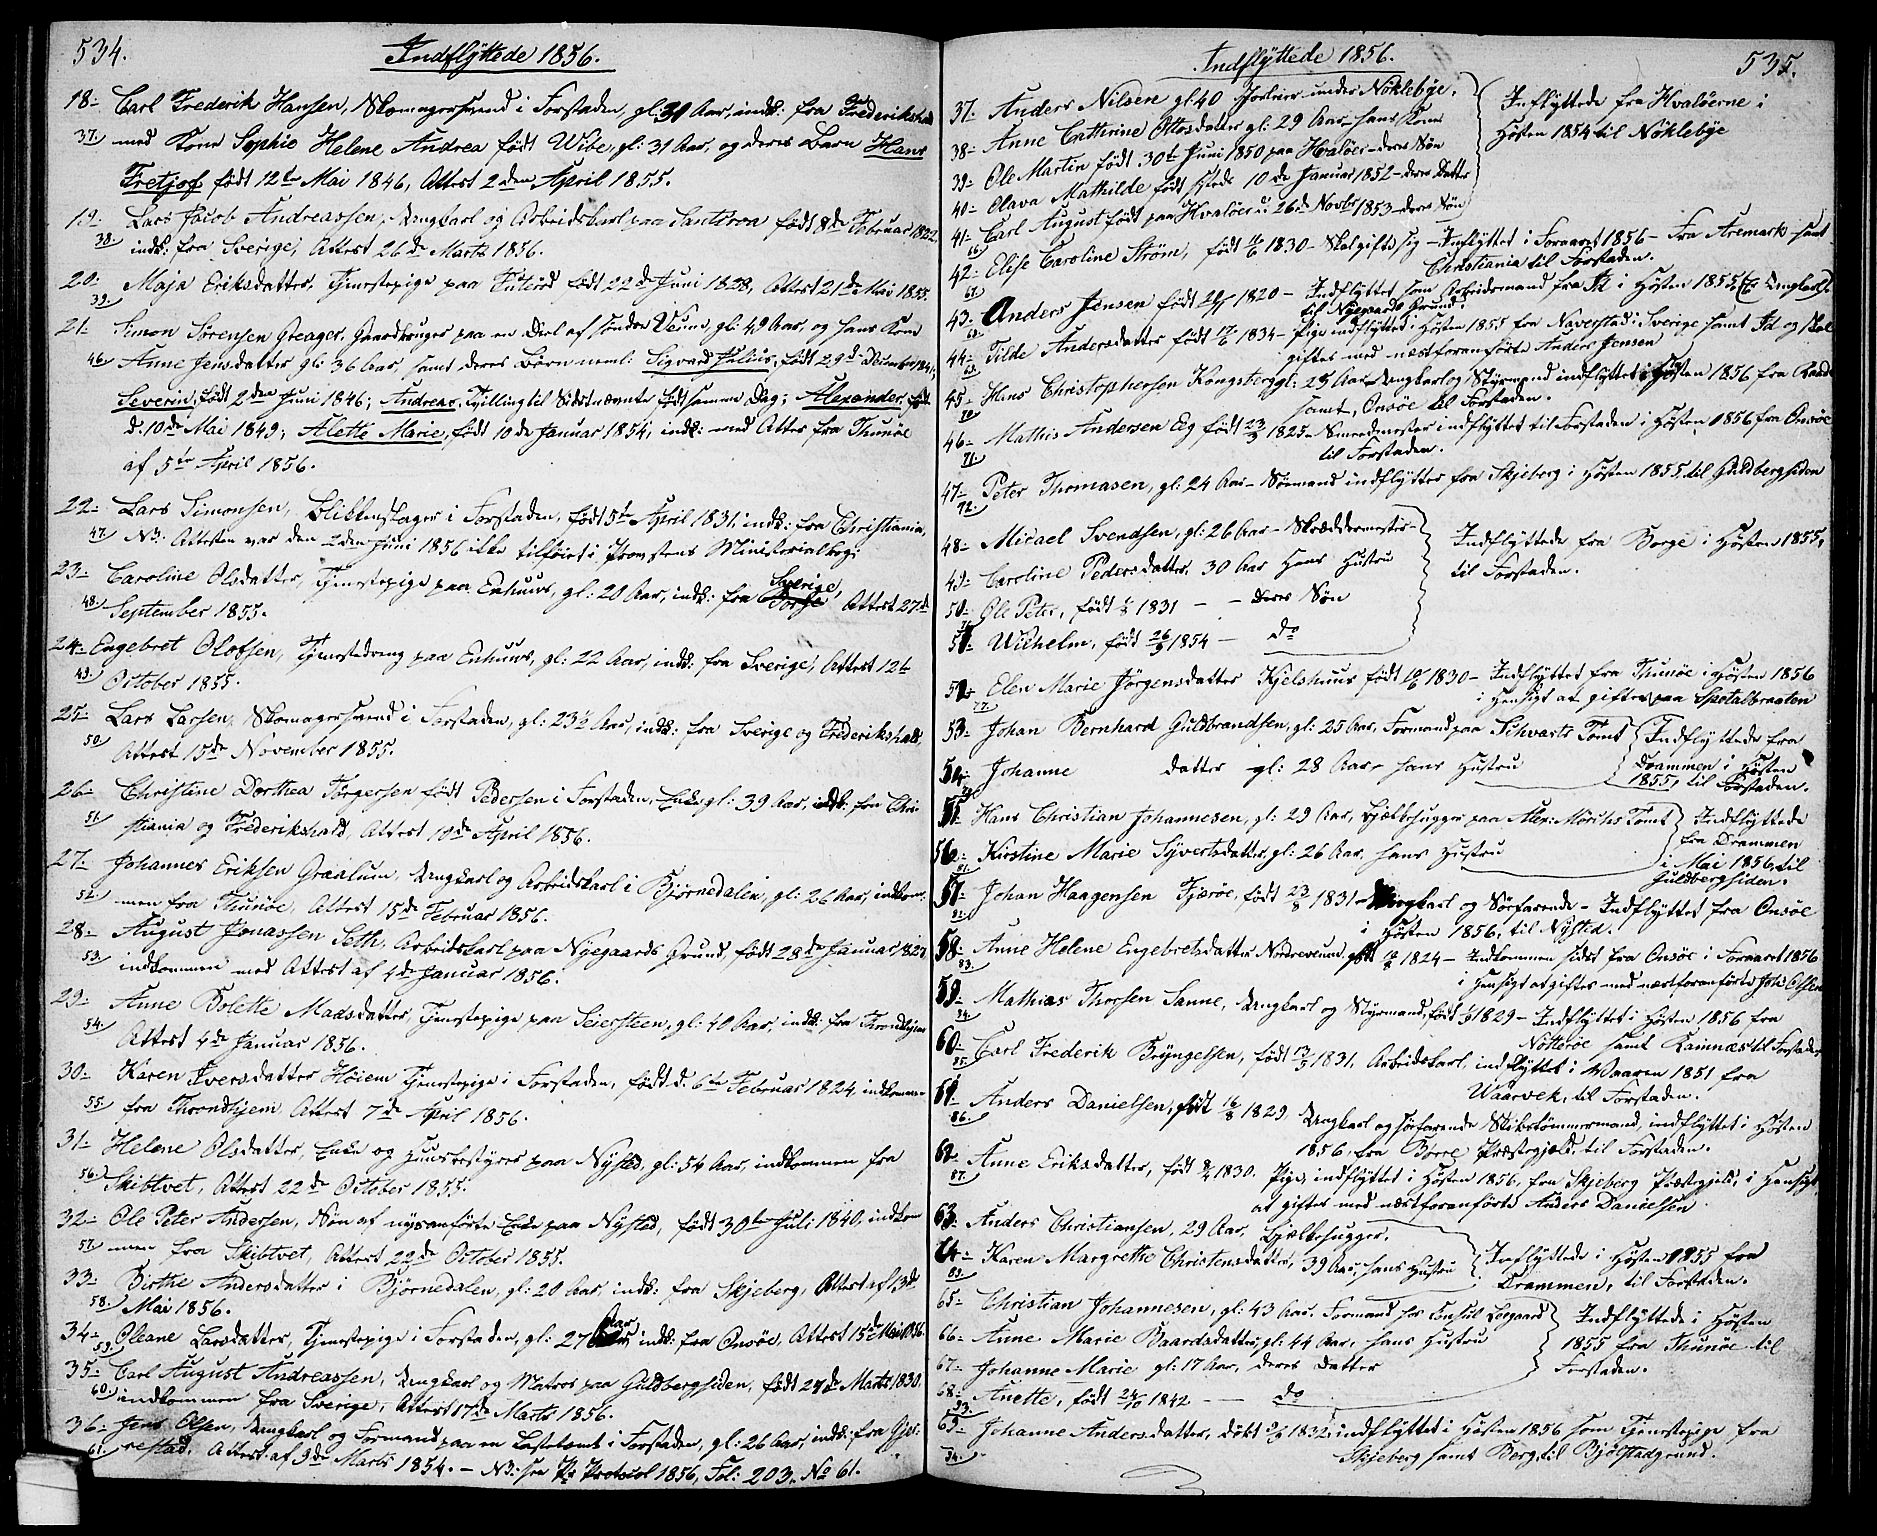 534.
Indflyttede 1856.
18- Carl Frederik Hansen, Skomagersvend i Forstaden, gl: 31 Aar, indk: fra Frederikshald
37. med Kone Sophie Helene Andrea født Wibe, gl: 31 Aar, og deres Barn Hans
Fretjof født 12te Mai 1846, Attest 2den April 1855.
19- Lars Jacob Andreassen, Ungkarl og Arbeidskarl paa født 8de Februar 1822
38. indk: fra Sverige, Attest 26de Marts 1856.
20- Maja Eriksdatter, Tjenestepige paa født 22de Juni 1828, Attest 21de Mai 1855.
39.
21- Simon Sørensen Greager, Gaardbruger paa en Deel af søndre Veum, gl: 49 Aar, og hans Kone
46. Anne Jensdatter gl: 36 Aar, samt deres Børn neml: Sigvard Julius, født 29de December 1841,
Severin, født 2den Juni 1846; Andreas, Tvilling til Sidstnævnte født samme Dag; Alexander, født
d. 10de Mai 1849; Alette Marie, født 10de Januar 1854; indk: med Attest fra Thunøe
af 5te April 1856.
22- Lars Simonsen, Blikkenslager i Forstaden, født 5te April 1831, indk: fra Christiania,
47. NB: Attesten var den 2den Juni 1856 ikke tilføiet i Provstens Ministerialbog:
23- Caroline Olsdatter, Tjenestepige paa Enhuus, gl: 20 Aar, indk: fra Sverige, Attest 27de
48. September 1855.
24- Engebret Olofsen, Tjenestedreng paa Enhuus, gl: 22 Aar, indk: fra Sverige, Attest 12te
49. October 1855.
25- Lars Larsen, Skomagersvend i Forstaden, gl: 23½ Aar, indk: fra Sverige og Frederikshald,
50. Attest 15de November 1855.
26- Christine Dorthea Törgersen født Pedersen i Forstaden, Enke, gl: 39 Aar, indk: fra Chri-
51. stiania og Frederikshald, Attest 10de April 1856.
27- Johannes Eriksen Graalum, Ungkarl og Arbeidskarl i Bjørnedalen, gl: 26 Aar, indkom-
52. men fra Thunøe, Attest 15de Februar 1856.
28- August Jonassen Seth, Arbeidskarl paa Nyegaards Grund, født 28de Januar 1827,
53. indkommen med Attest af 4de Januar 1856.
29- Anne Bolette Madsdatter, Tjenestepige paa Seiersteen, gl: 40 Aar, indk: fra Throndhjem
54. Attest 4de Januar 1856.
30- Karen Iversdatter Höiem Tjenestepige i Forstaden, født d. 6te Februar 1824, indkommen
55. fra Throndhjem Attest 7de April 1856.
31- Helene Olsdatter, Enke og Huusbestyrer paa Nysted, gl: 54 Aar, indkommen fra
56. Skibtvet, Attest 22de October 1855.
32- Ole Peter Andersen, Søn af nysanførte Enke paa Nysted, født 30te Juli 1840, indkom
57. men fra Skibtvet, Attest 22de October 1855.
33- Birthe Andersdatter i Bjørnedalen, gl: 20 Aar, indk: fra Skjeberg, Attest af 13de
58. Mai 1856.
34- Oleane Larsdatter, Tjenestepige i Forstaden, gl: 27 Aar, indk: fra Onsøe, Attest 15de Mai 1856.
59.
35- Carl August Andreassen, Ungkarl og Matros paa Guldbergsiden, født 27de Marts 1830,
60. indkommen fra Sverige, Attest 17de Marts 1856.
36- Jens Olsen, Ungkarl og Formand paa en Lastetomt i Forstaden, gl: 26 Aar, indk: fra Gjer-
61. restad. Attest af 9de Marts 1854. - NB: see Pr Protocol 1856, Fol: 203. No 61.
535.
Indflyttede 1856.
37- Anders Nilsen gl: 40 under Nöklebye.
38- Anne Cathrine Ottosdatter gl: 29 Aar - hans Kone
39- Ole Martin født 30te Juni 1850 paa Hvaløer - deres Søn
40- Olava Mathilde født 10de Januar 1852 - deres Datter
41- Carl August født paa Hvaløer 26de Novbr 1853 - deres Søn
Inflyttede fra Hvaløerne i
Høsten 1854 til Nöklebye
42- Elise Caroline Strøm, født 1830 - Skal gifte sig - Inflyttet i Foraaret 1856 - Fra Aremark samt
67. Christiania til Forstaden.
43- Anders Jensen født 1820 - Indflyttet som Arbeidsmand fra Id i Høsten 1855
68. til Nyegaards Grund.
44- Tilde Andersdatter født 1834 - Pige indflyttet i Høsten 1855 fra Naverstad i Sverige samt Id og skal
69. giftes med næstforanførte Anders Jensen
45- Hans Christophersen Kongsberg gl: 25 Aar - Ungkarl og Styrmand indflyttet i Høsten 1856 fra Raade
70. samt, Onsöe til Forstaden.
46- Mathis Andersen Eeg født 1825 - Smedmester indflyttet til Forstaden i Høsten 1856 fra Onsöe
71. til Forstaden.
47- Peter Thomasen, gl: 24 Aar - Sømand indflyttet fra Skjeberg i Høsten 1855, til Guldbergsiden
72.
48- Micael Svendsen, gl: 26 Aar - Skræddermester -
49- Caroline Pedersdatter, 30 Aar Hans Hustru
50- Ole Peter, født 1831 - - Deres Søn
51- Wilhelm, født 26/9 1854 - do
Indflyttede fra Borge i Høsten 1855,
til Forstaden.
52- Elen Marie Jörgensdatter Kjelshuus født 1830 - Indflyttet fra Thunöe i Høsten 1856
77. i Hensigt at giftes paa Spetalbraaten
53- Johan Bernhard Guldbrandsen, gl: 25 Aar, Formand paa Tomt
54- Johanne datter gl: 28 Aar - hans Hustru
Indflyttede fra
Drammen i Høsten
1855, til Forstaden.
55- Hans Christian Johannesen, gl: 29 Aar, Bjælkehugger paa Alex: Mörchs Tomt
56- Kirstine Marie Syvertsdatter, gl: 26 Aar, hans Hustru
Indflyttede
fra Drammen
i Mai 1856, til
Guldbergsiden.
57- Johan Haagensen Fjæröe, født 23/8 1831 - Ungkarl og Söefarende - Indflyttet fra Onsöe
82. i Høsten 1856, til Nysted.
58- Anne Helene Engebretsdatter Nordreveum, født 1824 - Indkommen sidst fra Onsöe i Foraaret 1856
83. i Hensigt at giftes med næstforanførte Joh: Olsen
59- Mathias Thorsen Sanne, Ungkarl og Styrmand, født 1829 - Indflyttet i Høsten 1856 fra
84. Nötteröe samt Ramnæs til Forstaden
60- Carl Frederik Bryngelsen, født 1831, Arbeidskarl, indflyttet i Waaren 1851 fra
85. Waarvek, til Forstaden.
61- Anders Danielsen, født 16/8 1829 Ungkarl og söefarende Skibstömmermand, indflyttet i Høsten
86. 1856, fra Borre Præstegjæld, til Forstaden.
62- Anne Eriksdatter, født 1830. Pige, indflyttet i Høsten 1856, fra Skjeberg Præstegjeld, i Hensigt
87. at giftes med næstforanførte Anders Danielsen
63- Anders Christiansen, 29 Aar, Bjælkehugger.
64- Karen Margrethe Christensdatter, 39 Aar, hans Hustru
89.
Inflyttede i Høsten 1855 fra
Drammen, til Forstaden.
65- Christian Johannesen, gl: 43 Aar, Formand hos Consul
66- Anne Marie Baardsdatter, gl: 44 Aar, hans Hustru
67- Johanne Marie gl: 17 Aar, deres Datter
68- Anette, født 24/10 1842 - - do
93.
Indflyttede i Høsten
1855 fra Thunöe til
Forstaden.
69- Johanne Andersdatter, døbt 1832, indflyttet i Høsten 1856 som Tjenestepige fra
94. Skjeberg samt Berg, til Bjölstadgrund.